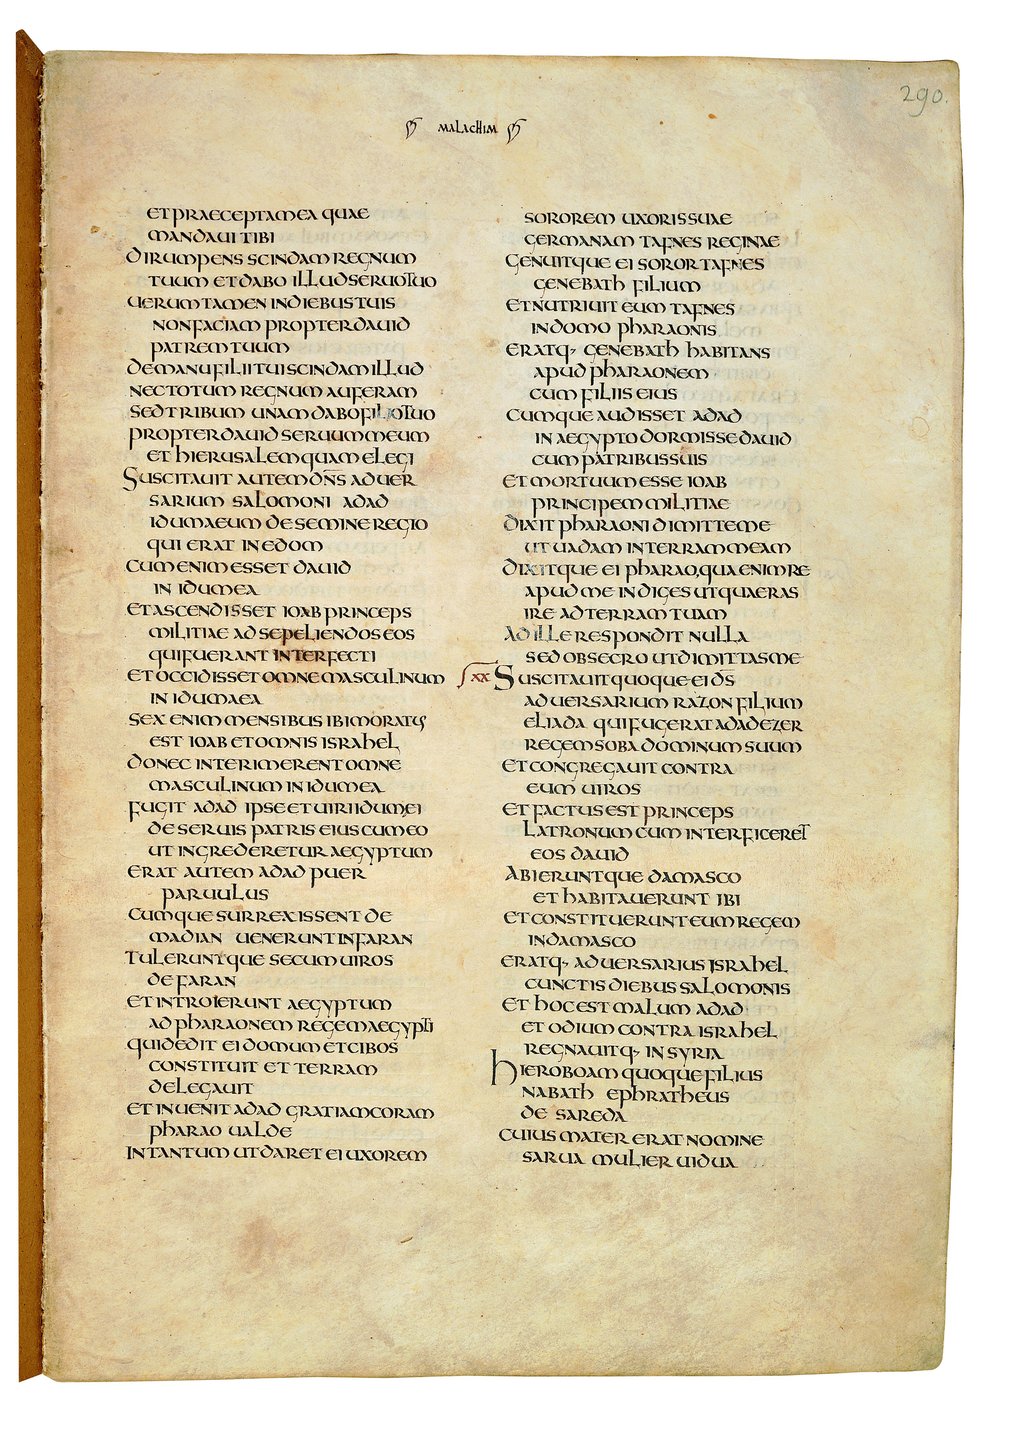 290.
MALACHIM
ET PRAECEPTA MEA QUAE
MANDAUI TIBI
DIRUMPENS SCINDAM REGNUM
TUUM ET DABO ILLUD SERUO TUO
UERUM TAMEN IN DIEBUS TUIS
NON FACIAM PROPTER DAUID
PATREM TUUM
DE MANU FILII TUI SCINDAM ILLUD
NEC TOTUM REGNUM AUFERAM
SED TRIBUM UNAM DABO FILIO TUO
PROPTER DAUID SERUUM MEUM
ET HIERUSALEM QUAM ELEGI
SUSCITAUIT AUTEM DN̄S ADUER
SARIUM SALOMONI ADAD
IDUMAEUM DE SEMINE REGIO
QUI ERAT IN EDOM
CUM ENIM ESSET DAUID
IN IDUMEA
ET ASCENDISSET IOAB PRINCEPS
MILITIAE AD SEPELIENDOS EOS
QUI FUERANT INTERFECTI
ET OCCIDISSET OMNE MASCULINUM
IN IDUMAEA
SEX ENIM MENSIBUS IBI MORATUS
EST IOAB ET OMNIS ISRAHEL
DONEC INTERIMERENT OMNE
MASCULINUM IN IDUMEA
FUGIT ADAD IPSE ET UIRI IDUMEI
DE SERUIS PATRIS EIUS CUM EO
UT INGREDERETUR AEGYPTUM
ERAT AUTEM ADAD PUER
PARUULUS
CUMQUE SURREXISSENT DE
MADIAN UENERUNT IN FARAN
TULERUNTQUE SECUM UIROS
DE FARAN
ET INTROIERUNT AEGYPTUM
AD PHARAONEM REGEM AEGYPTI
QUI DEDIT EI DOMUM ET CIBOS
CONSTITUIT ET TERRAM
DELEGAUIT
ET INUENIT ADAD GRATIAM CORAM
PHARAO UALDE
IN TANTUM UT DARET EI UXOREM
SOROREM UXORIS SUAE
GERMANAM TAFNES REGINAE
GENUITQUE EI SOROR TAFNES
GENEBATH FILIUM
ET NUTRIUIT EUM TAFNES
IN DOMO PHARAONIS
ERATQ, GENEBATH HABITANS
APUD PHARAONEM
CUM FILIIS EIUS
CUMQUE AUDISSET ADAD
IN AEGYPTO DORMISSE DAUID
CUM PATRIBUS SUIS
ET MORTUUM ESSE IOAB
PRINCIPEM MILITIAE
DIXIT PHARAONI DIMITTE ME
UT UADAM IN TERRAM MEAM
DIXITQUE EI PHARAO, QUA ENIM RE
APUD ME INDIGES UT QUAERAS
IRE AD TERRAM TUAM
AD ILLE RESPONDIT NULLA
SED OBSECRO UT DIMITTAS ME
XX SUSCITAUIT QUOQUE EI D̄S
ADUERSARIUM RAZON FILIUM
ELIADA QUI FUGERAT ADADEZER
REGEM SOBA DOMINUM SUUM
ET CONGREGAUIT CONTRA
EUM UIROS
ET FACTUS EST PRINCEPS
LATRONUM CUM INTERFICERET
EOS DAUID
ABIERUNTQUE DAMASCO
ET HABITAUERUNT IBI
ET CONSTITUERUNT EUM REGEM
IN DAMASCO
ERATQ, ADUERSARIUS ISRAHEL
CUNCTIS DIEBUS SALOMONIS
ET HOC EST MALUM ADAD
ET ODIUM CONTRA ISRAHEL
REGNAUITQ, IN SYRIA
HIEROBOAM QUOQUE FILIUS
NABATH EPHRATHEUS
DE SAREDA
CUIUS MATER ERAT NOMINE
SARUA MULIER UIDUA